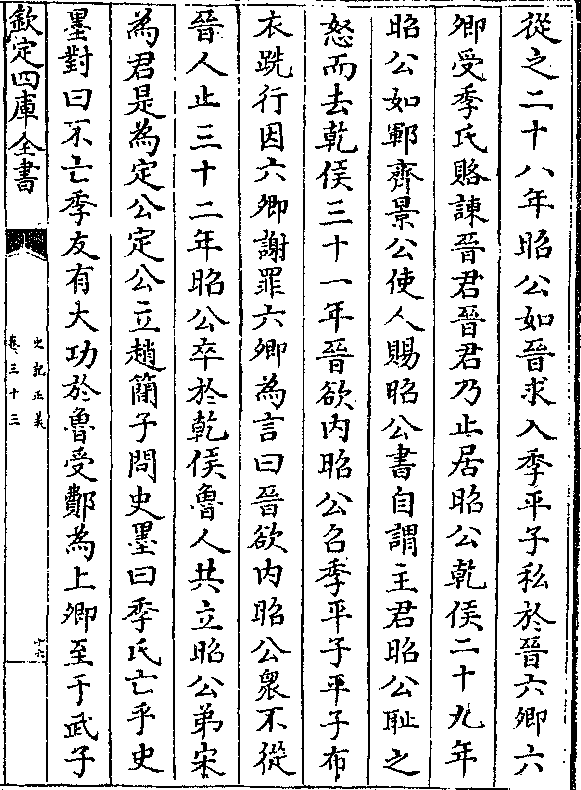 從之二十八年昭公如晉求入季平子私於晉六卿六
卿受季氏賂諫晉君晉君乃止居昭公乾侯二十九年
昭公如鄆齊景公使人賜昭公書自謂主君昭公恥之
怒而去乾侯三十一年晉欲内昭公召季平子平子布
衣跣行因六卿謝罪六卿為言曰晉欲内昭公衆不從
晉人止三十二年昭公卒於乾侯魯人共立昭公弟宋
為君是為定公定公立趙簡子問史墨曰季氏亡乎史
墨對曰不亡季友有大功於魯受鄪為上卿至于武子
欽定四庫全書
史記正義
卷三十三
十六